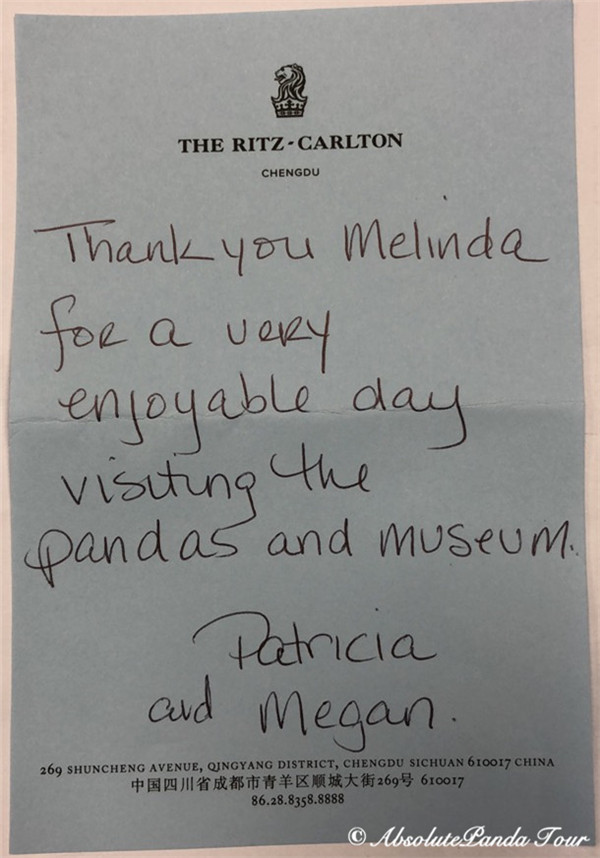 THE RITZ-CARLTON
CHENGDU
Thank you Melinda
for a very
enjoyable day
visiting the
pandas and museum.
Patricia
and Megan.
269 SHUNCHENG AVENUE, QINGYANG DISTRICT, CHENGDU SICHUAN 610017 CHINA
中国四川省成都市青羊区顺城大街269号 610017
86.28.8358.8888
© AbsolutePanda Tour